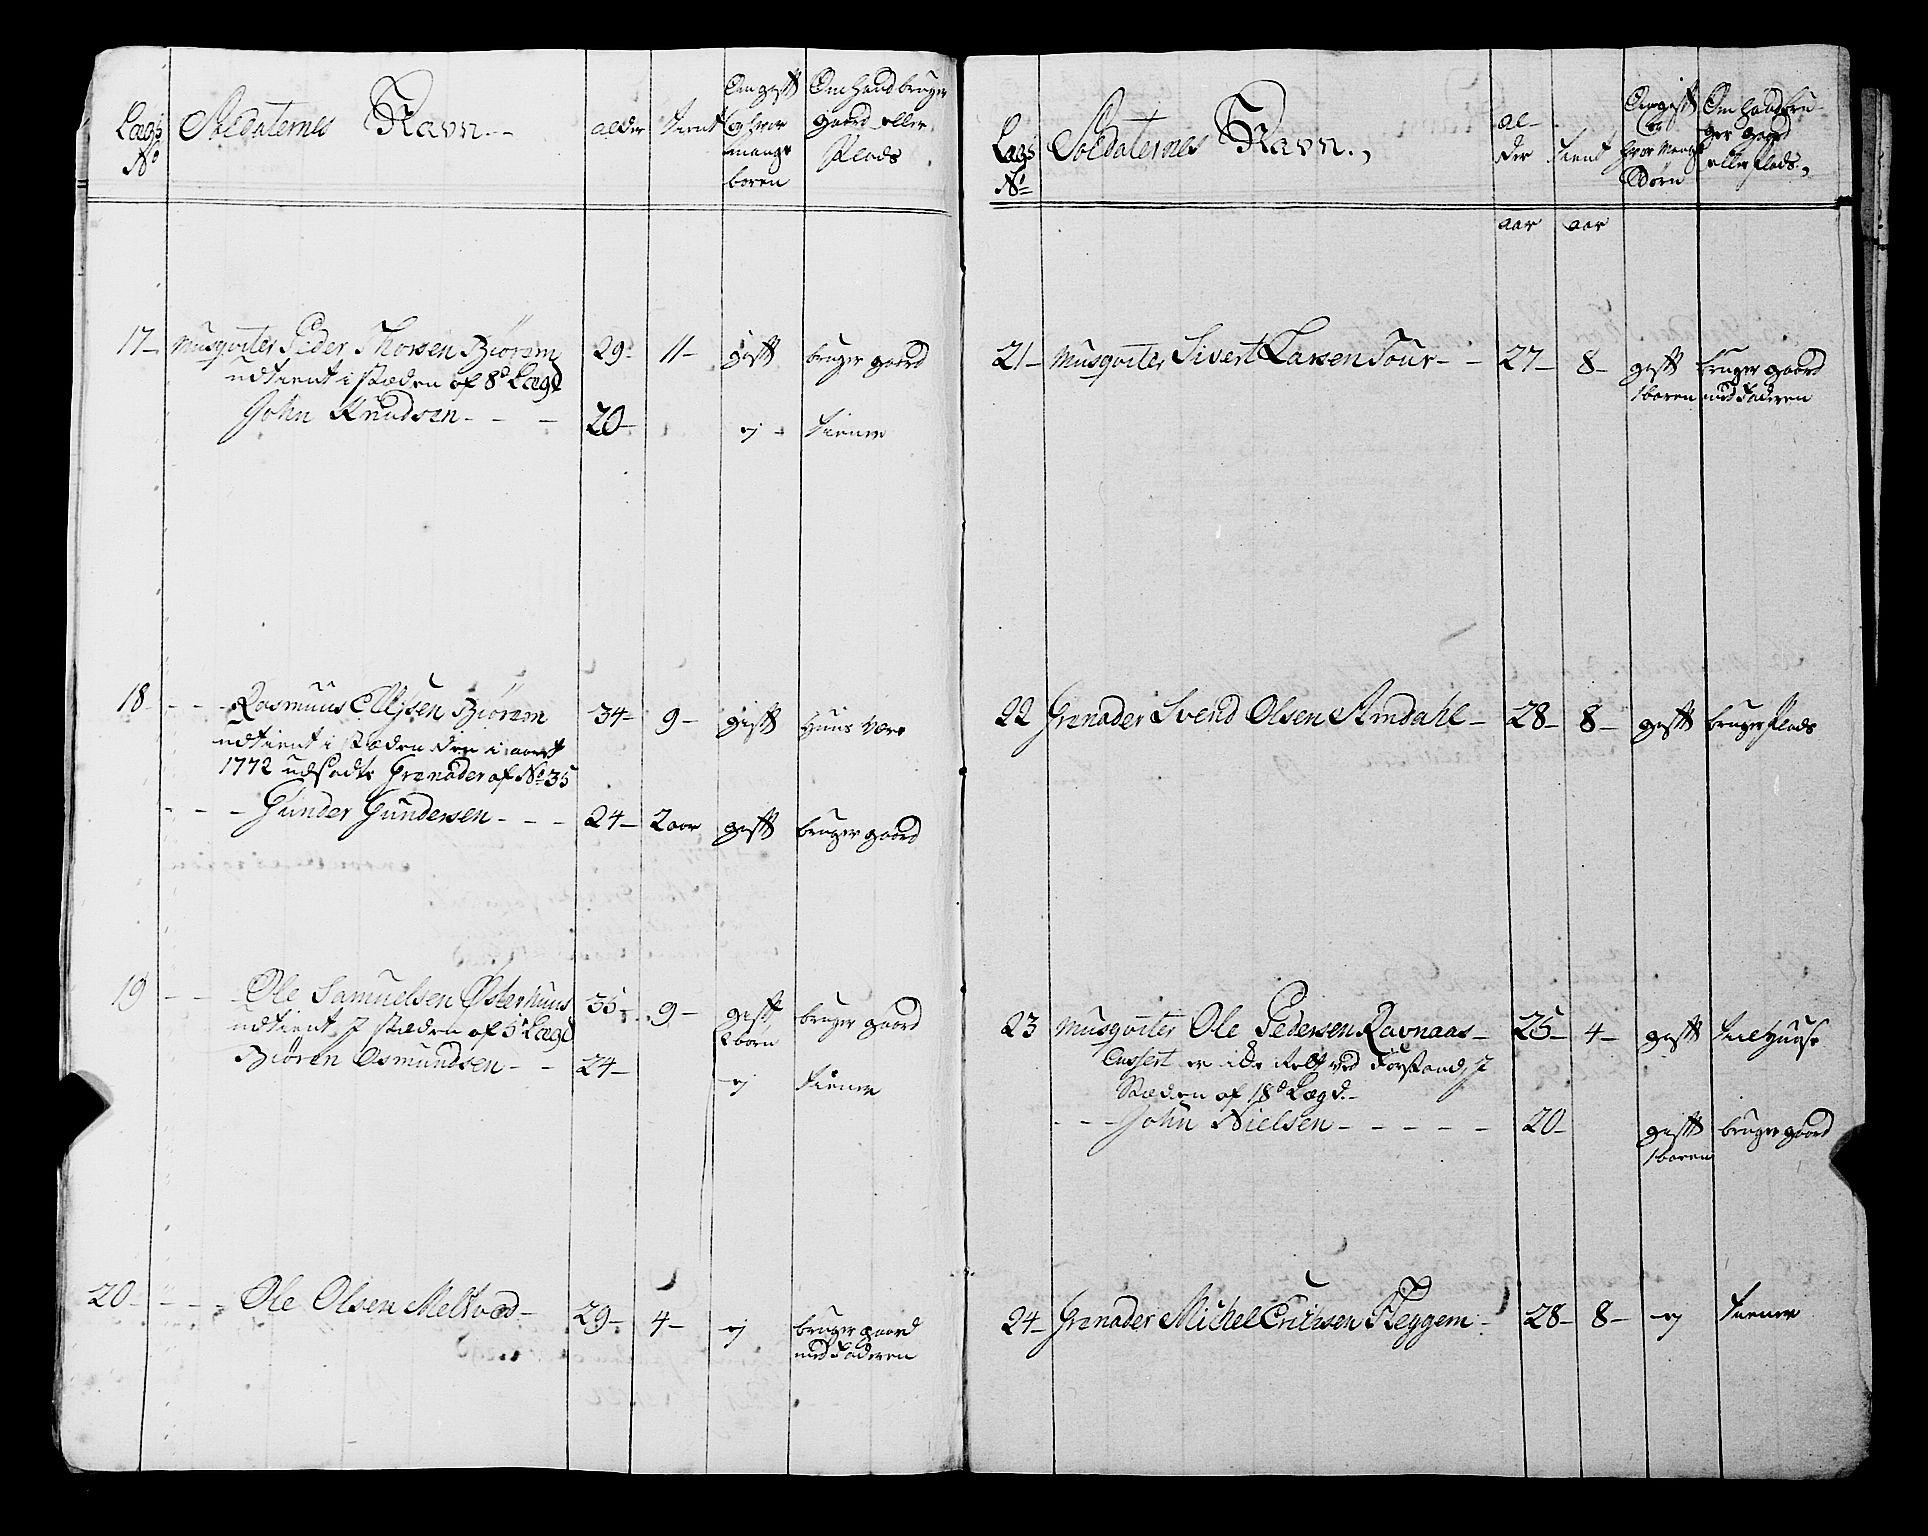 Lægs No
Soldaternes Navn
alder
tient
Om gift og hvor mange boren
Om hand bruger gaard eller Plads
17 Musqviter Peder Thorsen Biörem 29 11 gift bruger gaard
udtient i stæden af 8d Lægd
John Knudsen 20 ej tiener
18 Rasmuus Ellefsen Biörem 34 9 gift Huus Være
udtient i stæden den i aaret
1772 udsadte Grenader af No 35
Gunder Gundersen 24 2 aar gift bruger gaard
19 Ole Samuelsen Österhuus 35 9 gift bruger gaard
udtient, I stæden af 5t Lægd 2 born
Biören Osmundsen 24 ej tiener
20 Ole Olsen Meltvæd 29 4 ej bruger gaard
med Faderen
Lægs No
Soldaternes Navn
al-
der
tient
Om gift og hvor Mange Börn
Om hand bru-
ger gaard
eller Plads
aar aar
21 Musqviter Sivert Larsen Tour 27 8 gift bruger gaard
1 boren med Faderen
22 Grenader Svend Olsen Amdahl 28 8 gift bruger Plads
23 Musqviter Ole Pedersen Ravnaas 25 4 gift
Casseret er ikke Rett ved Forstand, I
Stæden af 18d Lægd
John Nielsen 20 gift bruger gaard
1 boren
24 Grenader Michel Erichsen Fleygem 28 8 ej tiener